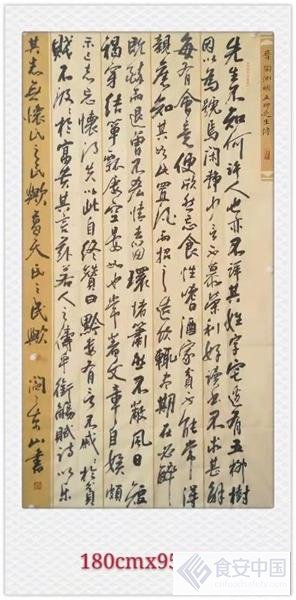 晋陶渊明五柳先生传
先生不知何許人也亦不詳其姓字宅邊有五柳樹
因以為號焉闲静少言不慕荣利好讀書不求甚解
每有會意便欣然忘食性嗜酒家貧不能常得
親舊知其如此或置酒而招之造飲輒盡期在必醉
既醉而退曾不吝情去留環堵蕭然不蔽風日短
褐穿結箪瓢屢空晏如也常著文章自娱頗
示己志忘懷得失以此自終赞曰黔婁有言不戚戚於貧
賤不汲汲於富貴其言兹若人之儔乎銜觴賦詩以樂
其志無懷氏之民歟葛天氏之民歟 山書
180cmx95
食安中国